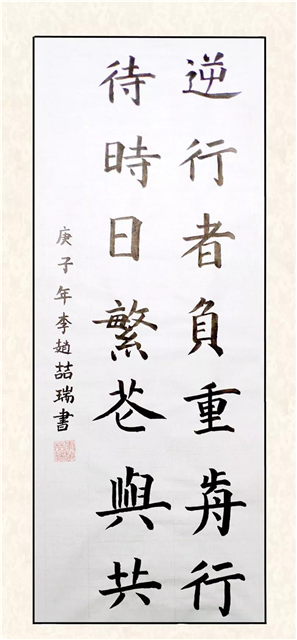 逆行者負重歬行
待時日繁花與共
庚子年李趙喆瑞書